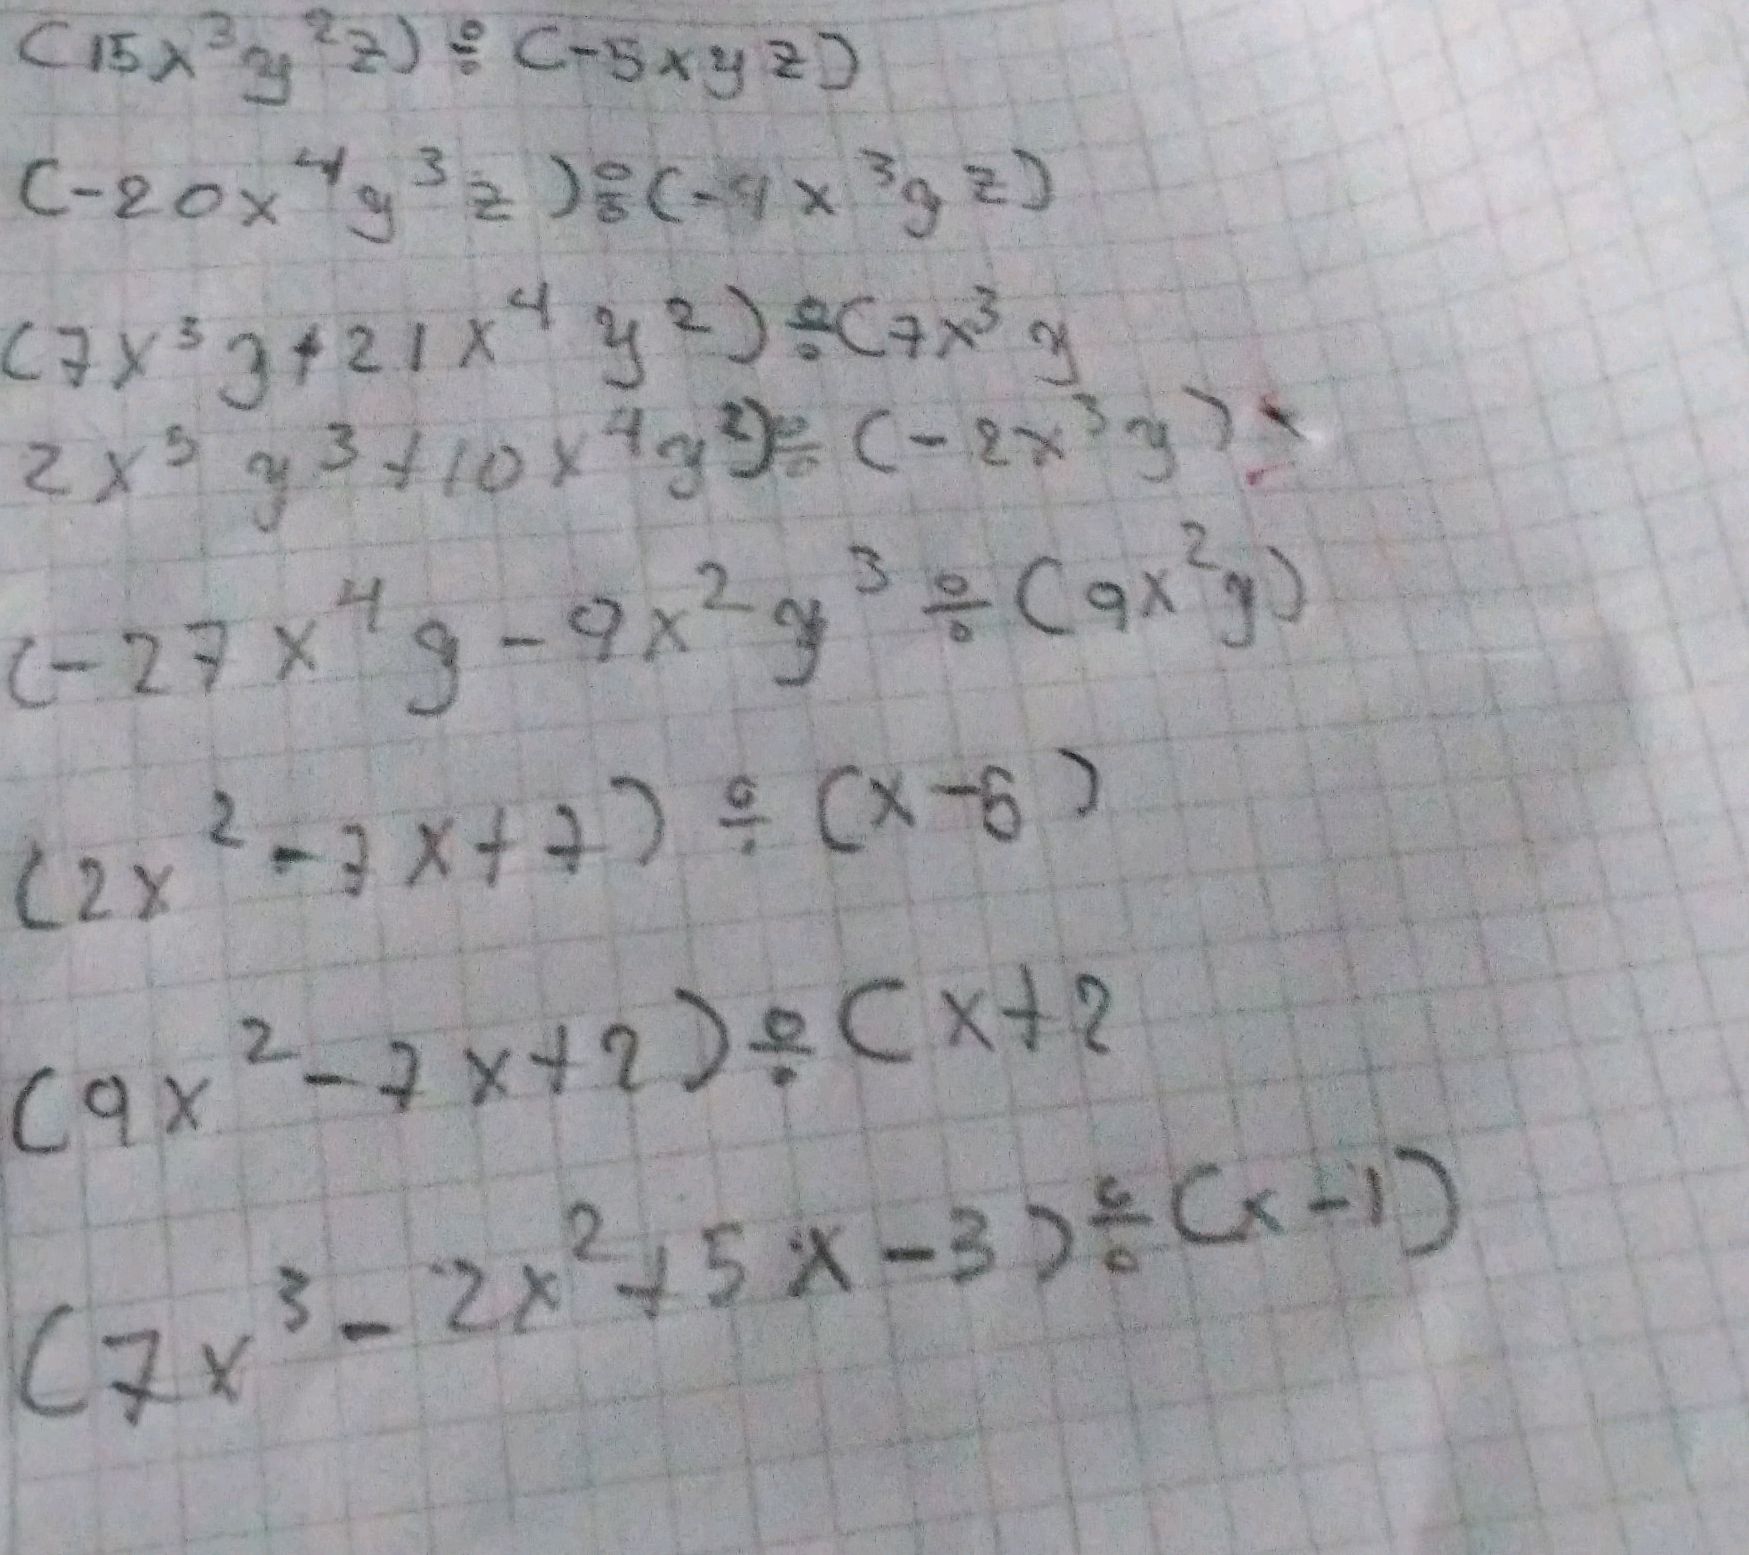 (15x³y²z)÷(-5xyz)
(-20x⁴y³z)÷(-4x³yz)
(7x³y+21x⁴y²)÷(7x³y
2x⁵y³+10x⁴y²)÷(-2x³y)
(-27x⁴y-9x²y³÷(9x²y)
(2x²-7x+7)÷(x-5)
(9x²-7x+2)÷(x+2
(7x³-2x²+5x-3)÷(x-1)